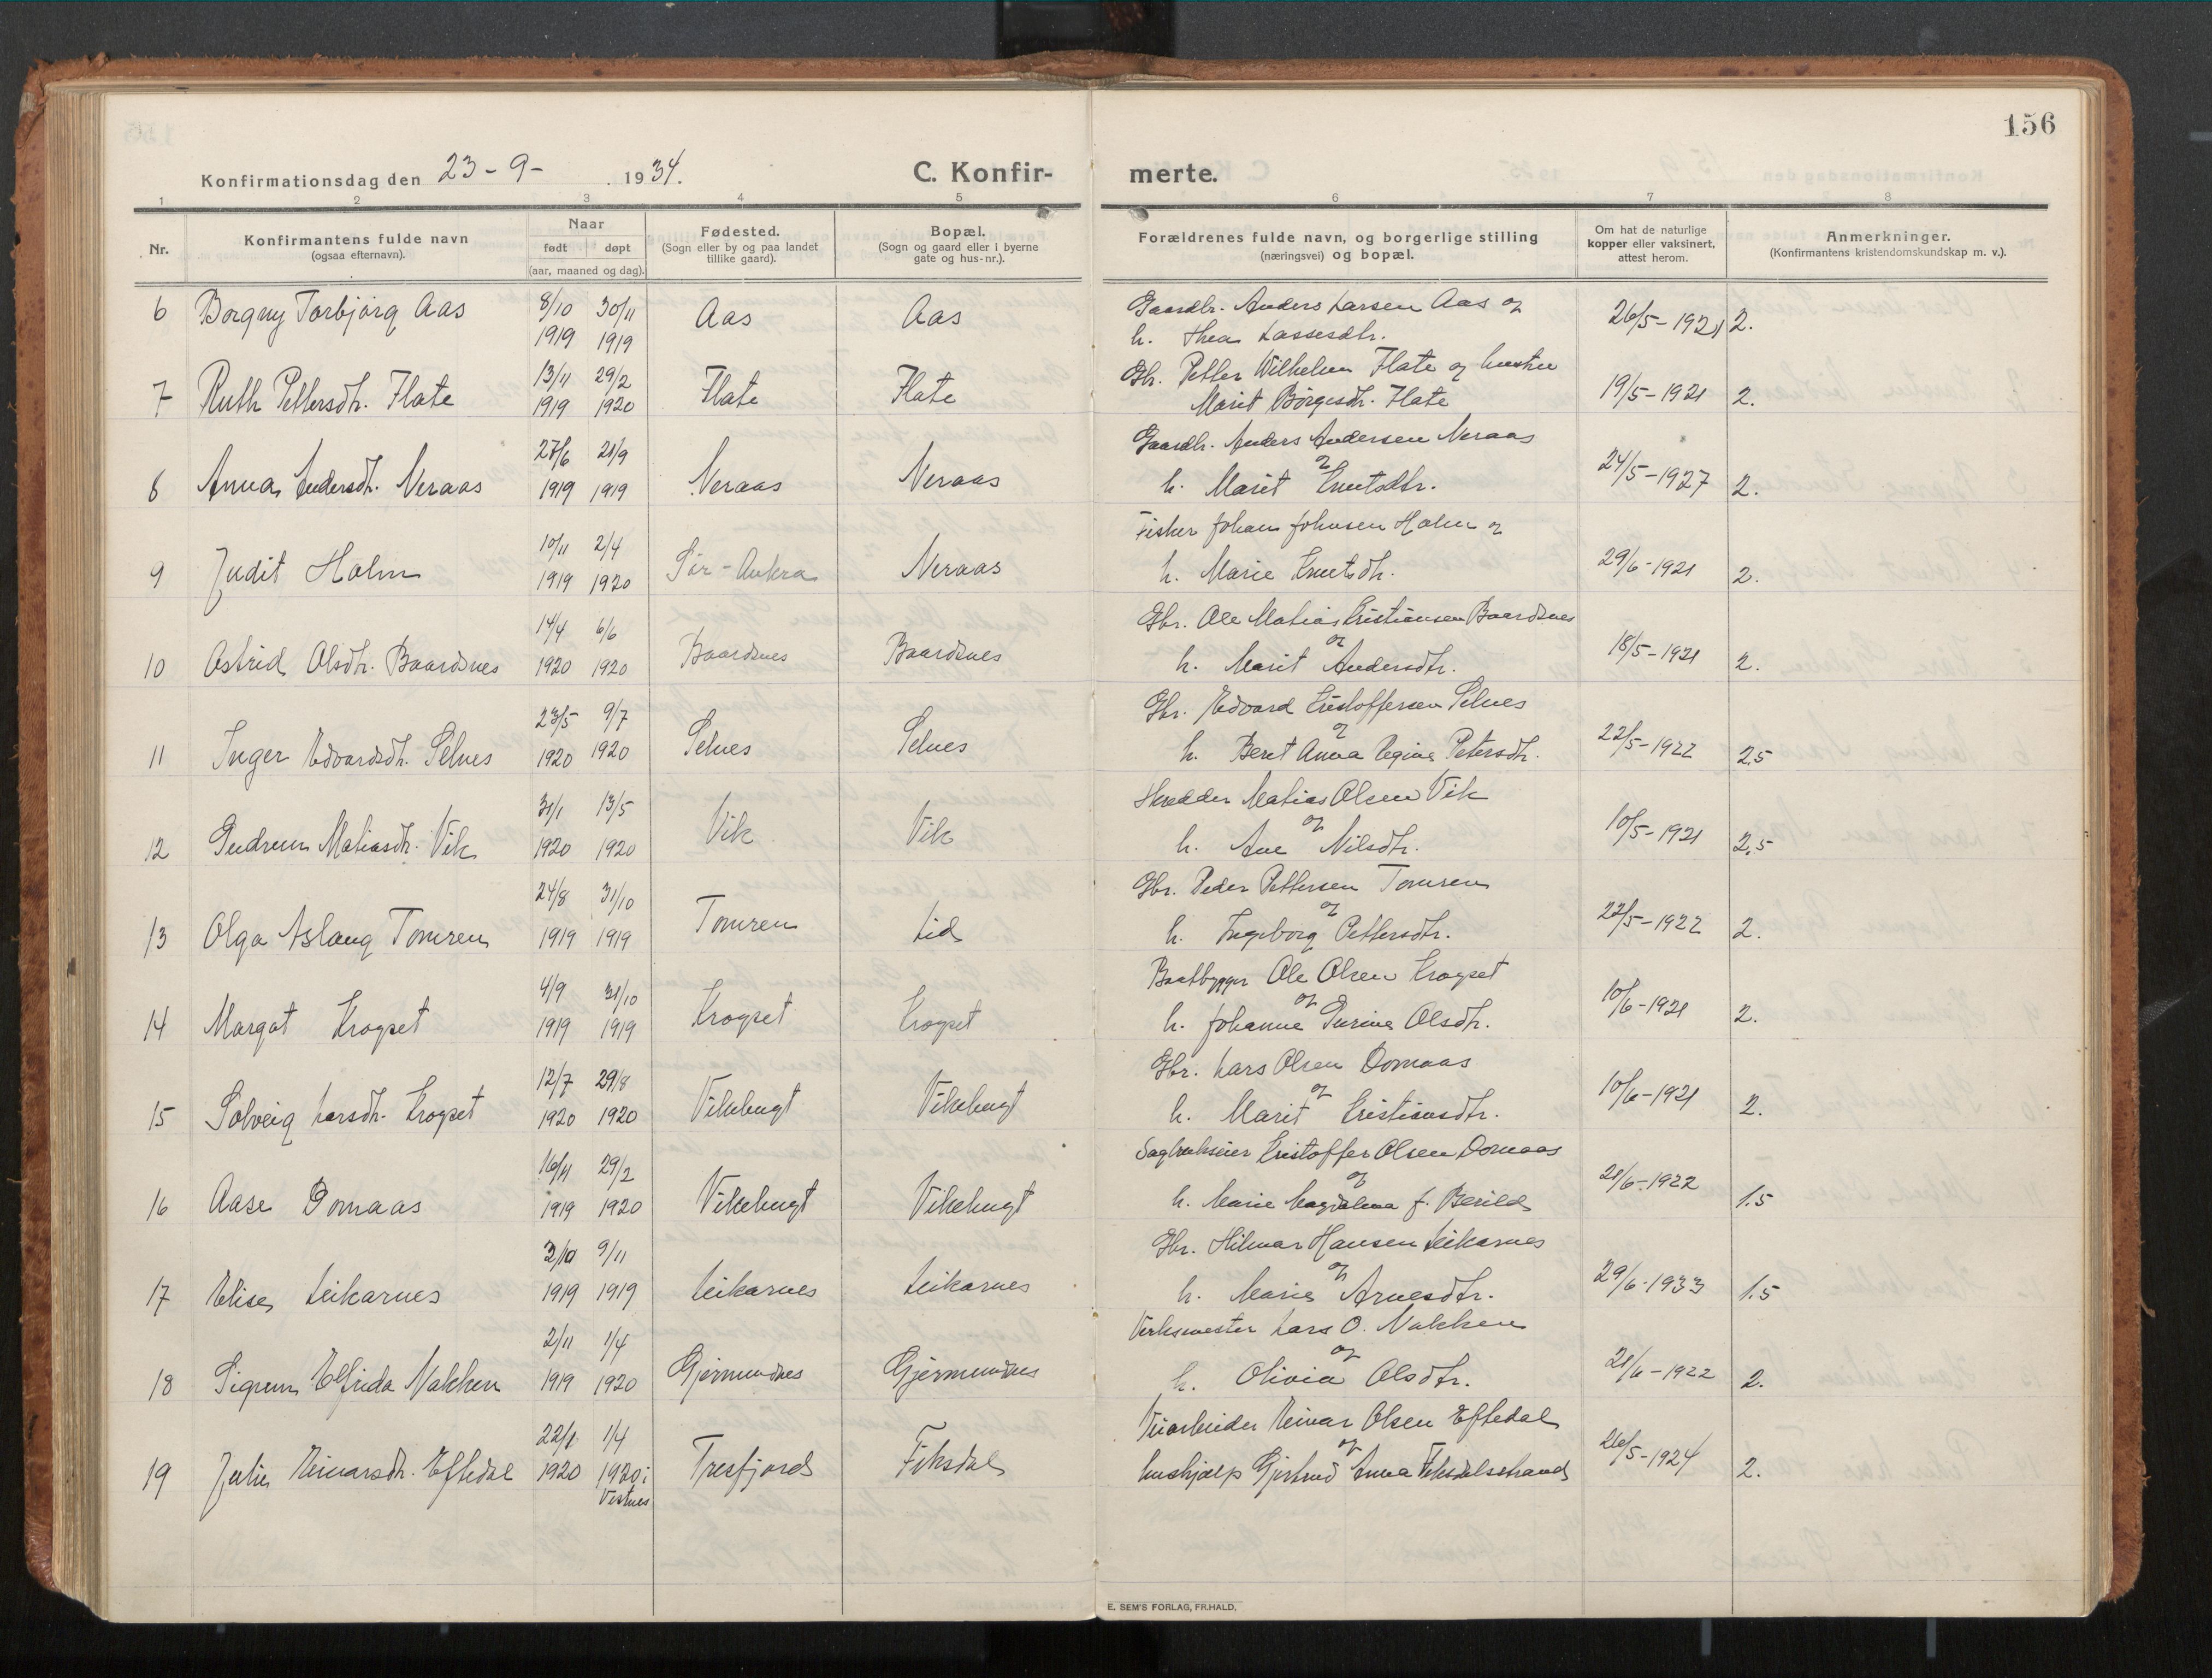 156
Konfirmationsdag den 23-9- 1934.
C. Konfirmerte.
1 2 3 4 5 6 7 8
Nr.
Konfirmantens fulde navn
(ogsaa efternavn).
Naar
født døpt
(aar, maaned og dag).
Fødested.
(Sogn eller by og paa landet
tillike gaard).
Bopæl.
(Sogn og gaard eller i byerne
gate og hus-nr.).
Forældrenes fulde navn, og borgerlige stilling
(næringsvei) og bopæl.
Om hat de naturlige
kopper eller vaksinert,
attest herom.
Anmerkninger.
(Konfirmantens kristendomskundskap m. v.).
6 Borgny Torbjørg Aas 8/10 1919 30/11 1919 Aas Aas
Gaardbr. Anders Larsen Aas og
h. Thea Lassesdtr. 26/5-1921 2.
7 Ruth Pettersdtr. Flate 13/11 1919 29/2 1920 Flate Flate
Gbr. Petter Wilhelm Flate og hustru
Marit Børgesdtr. Flate 19/5-1921 2.
8 Anna Andersdtr. Neraas 27/6 1919 21/9 1919 Neraas Neraas
Gaardbr. Anders Andersen Neraas
og
h. Marit Knutsdtr. 24/5-1927 2.
9 Judit Holm 10/11 1919 2/4 1920 Sør-Aukra Neraas
Fisker Johan Johnsen Holm og
h. Marie Knutsdtr. 29/6-1921 2.
10 Astrid Olsdtr. Baardsnes 14/4 1920 6/6 1920 Baardsnes Baardsnes
Gbr. Ole Matias Kristiansen Baardsnes
og
h. Marit Andersdtr. 18/5-1921 2.
11 Inger Edvardsdtr. Selnes 23/5 1920 9/7 1920 Selnes Selnes
Gbr. Edvard Kristoffersen Selnes
og
h. Beret Anna Regine Petersdtr. 22/5-1922 2.5
12 Gudrun Matiasdtr. Vik 31/1 1920 13/5 1920 Vik Vik
Skredder Matias Olsen Vik
og
h. Ane Nilsdtr. 10/5-1921 2.5
13 Olga Aslaug Tomren 24/8 1919 31/10 1919 Tomren Lid
Gbr. Peder Pettersen Tomren
og
h. Ingeborg Pettersdtr. 22/5-1922 2.
14 Margot Krogset 4/9 1919 31/10 1919 Krogset Krogset
Baatbygger Ole Olsen Krogset
og
h. Johanne Gurine Olsdtr. 10/6-1921 2.
15 Solveig Larsdtr. Krogset 12/7 1920 29/8 1920 Vikebugt Vikebugt
Gbr. Lars Olsen Domaas
og
h. Marit Kristiansdtr. 10/6-1921 2.
16 Aase Domaas 16/11 1919 29/2 1920 Vikebugt Vikebugt
Sagbrukseier Kristoffer Olsen Domaas
og
h. Marie Magdalena f. Berild 21/6-1922 1.5
17 Elise Leikarnes 2/10 1919 9/11 1919 Leikarnes Leikarnes
Gbr. Hilmar Hansen Leikarnes
og
h. Marie Arnesdtr. 29/6-1933 1.5
18 Sigrun Elfrida Nakken 2/11 1919 1/4 1920 Gjermundnes Gjermundnes
Verksmester Lars O. Nakken
og
h. Olivia Olsdtr. 21/6-1922 2.
19 Julie Einarsdtr. Eftedal 22/1 1920 1/4 1920 i Vestnes Tresfjord Fiksdal
Veiarbeider Einar Olsen Eftedal
og
hushjælp Gjertrud Anna Fiksdalsstrand 26/5-1924 2.
E. SEM'S FORLAG, FR.HALD.